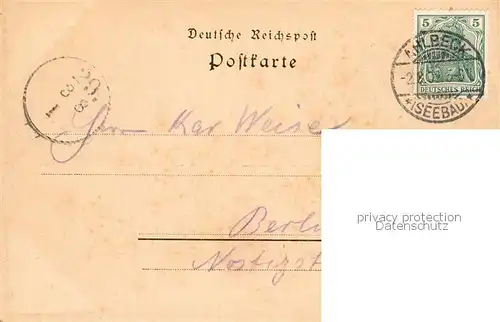 Deutsche Reichspost
Postkarte
5 5
DEUTSCHES REICH
AHLBECK
(SEEBAD)
Kar Weise
Berli
Nostizst
privacy protection
Datenschutz